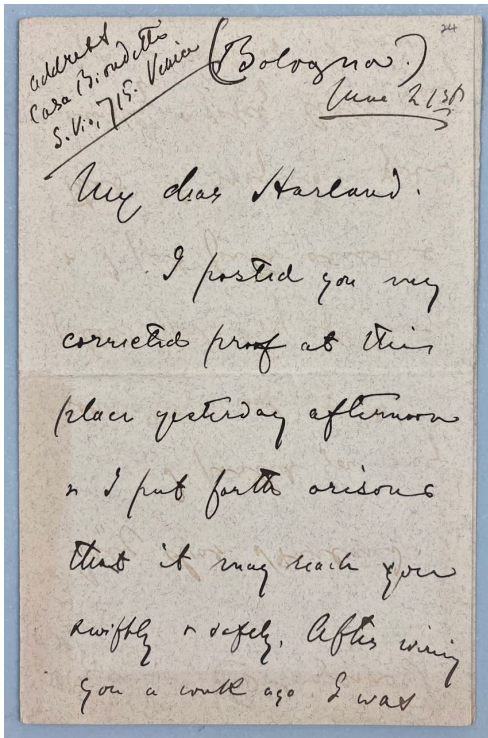 24
address
Casa Biondetti
S. Vio, 715. Venice
(Bologna.)
June 21st
My dear Harland.
I posted you my
corrected proof at this
place yesterday afternoon
& I put forth orisons
that it may reach you
swiftly & safely. After wiring
you a week ago I was